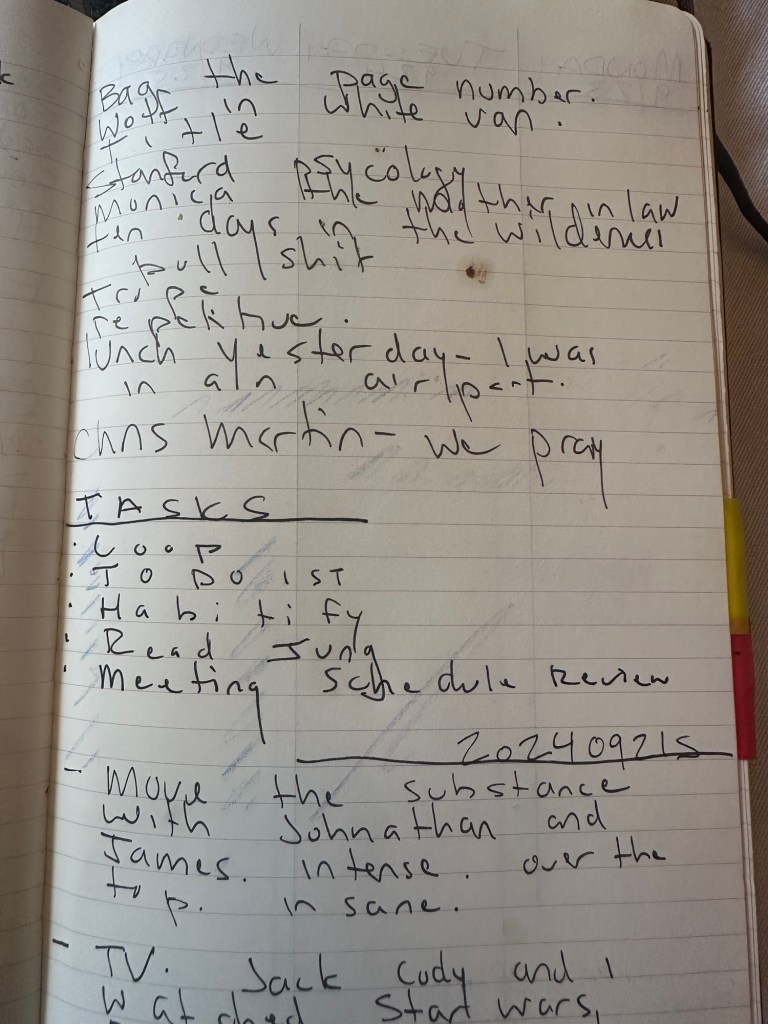 Bag the page number.
Wolf in white van.
title
Stanford psycölogy
monica the mother in law
ten days in the wilderness
bull/shit
tripe
repetitive.
lunch yesterday - I was
in a/n air/port.
Chris Martin - we pray
TASKS
· LOOP
· TO DO IST
· Habitify
· Read Jung
· Meeting Schedule Review
20240921S
- Move the substance
with Johnathan and
James. intense. over the
top. insane.
- TV. Jack Cody and I
watched Start wars,